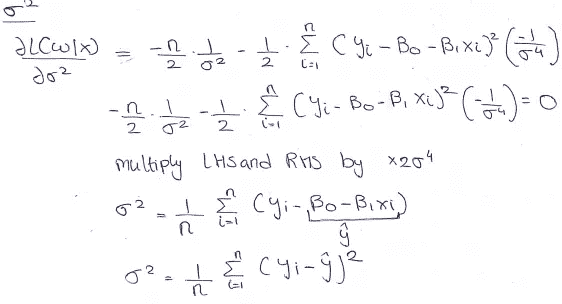 σ²
∂L(ω|x) / ∂σ² = -n/2 · 1/σ² - 1/2 · Σ_{i=1}^{n} (yi - B0 - B1xi)² (-1/σ⁴)
-n/2 · 1/σ² - 1/2 · Σ_{i=1}^{n} (yi - B0 - B1xi)² (-1/σ⁴) = 0
multiply LHS and RHS by x2σ⁴
σ² = 1/n Σ_{i=1}^{n} (yi - B0 - B1xi)
ŷ
σ² = 1/n Σ_{i=1}^{n} (yi - ŷ)²